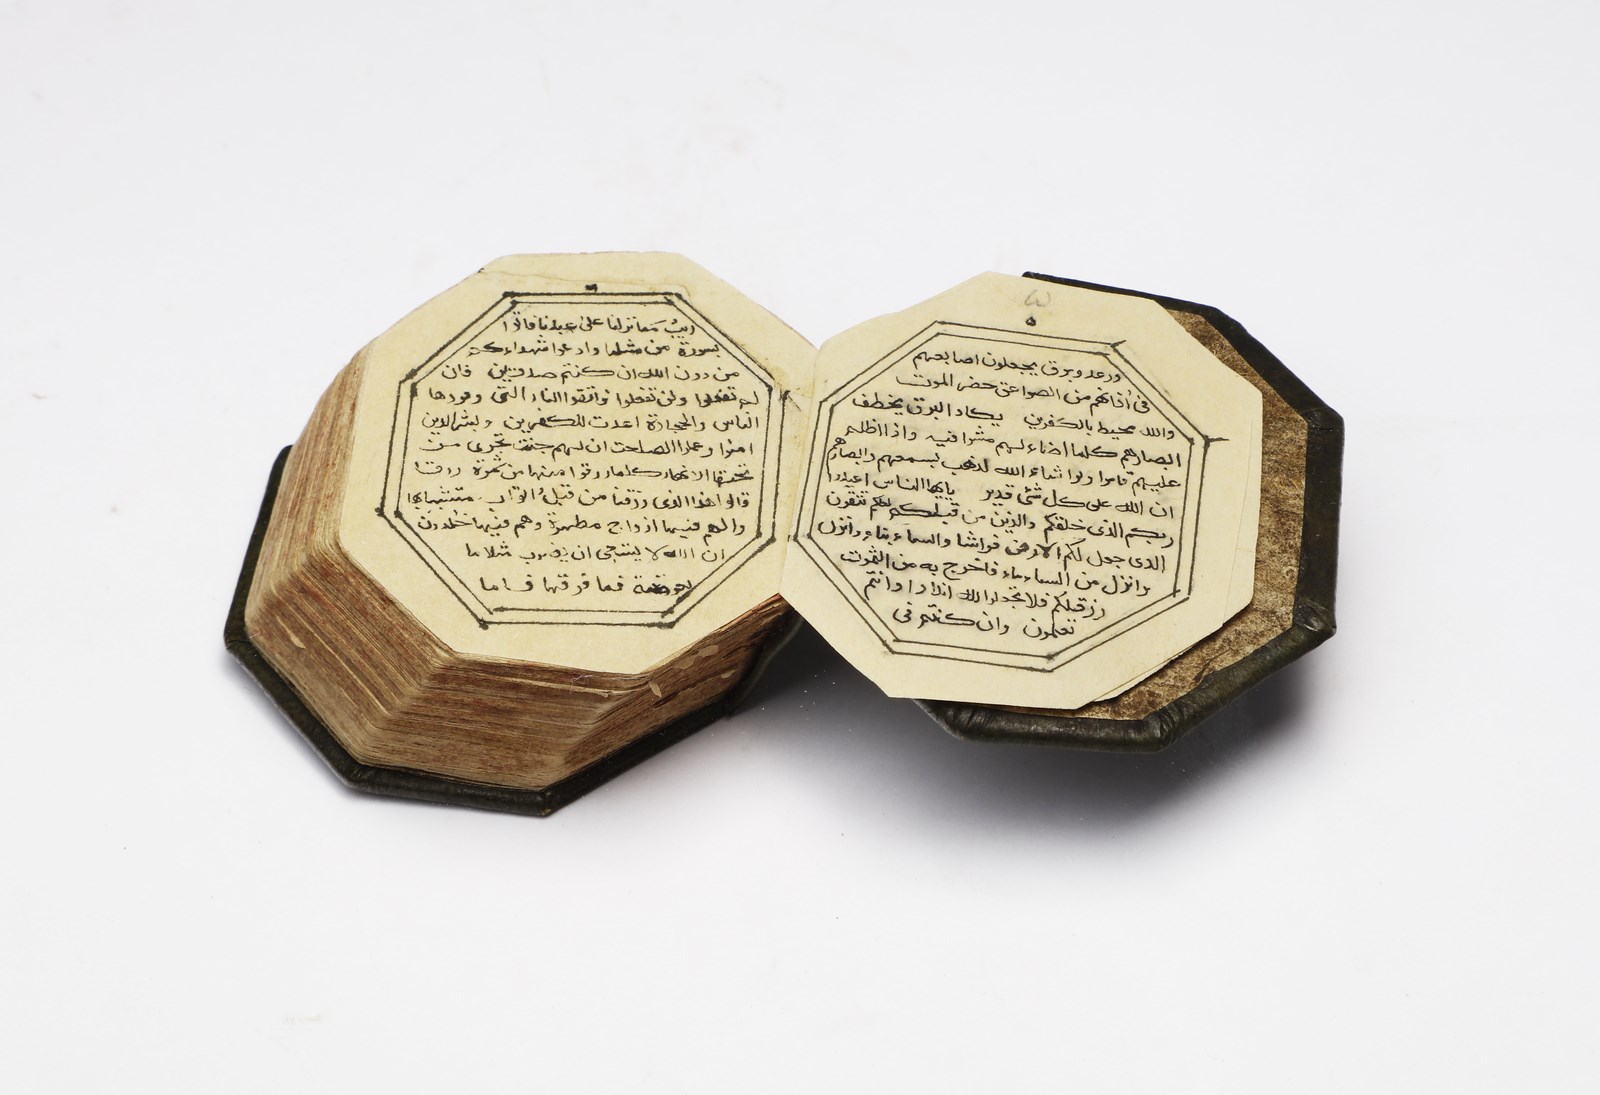 ٥
ورعد وبرق يجعلون اصابعهم
فى أذانهم من الصواعق حضر الموت
والله محيط بالكفرين يكاد البرق يخطف
ابصارهم كلما اضاء لهم مشوا فيه واذا اظلم
عليهم قاموا ولو اشاء الله لذهب بسمعهم وابصارهم
ان الله على كل شئ قدير يايها الناس اعبدوا
ربكم الذى خلقكم والذين من قبلكم لعلكم تتقون
الذى جعل لكم الارض فراشا والسماء بناء وانزل
وانزل من السماء ماء فاخرج به من الثمرت
رزقلكم فلا تجعلوا لله اندادا وانتم
تعلمون وان كنتم فى
ريب مما نزلنا على عبدنا فاتوا
بسورة من مثله وادعوا شهداءكم
من دون الله ان كنتم صدقين فان
لم تفعلوا ولن تفعلوا فاتقوا النار التى وقودها
الناس والحجارة اعدت للكفرين وبشر الذين
امنوا وعملوا الصلحت ان لهم جنت تجرى من
تحتها الانهار كلما رزقوا منها من ثمرة رزقا
قالوا هذا الذى رزقنا من قبل واتوا به متشبها
ولهم فيها ازواج مطهرة وهم فيها خلدون
ان الله لا يستحى ان يضرب مثلا ما
بعوضة فما فوقها فاما